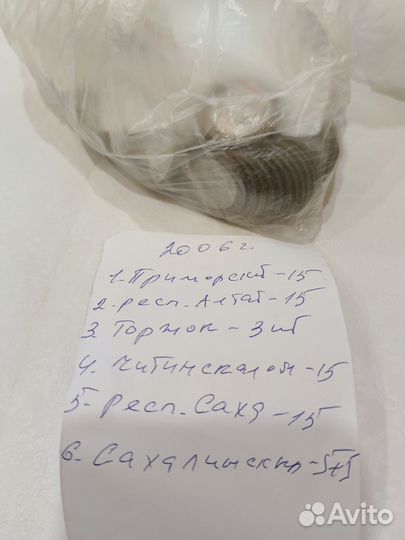 2006г.
1. Приморский - 15
2. респ. Алтай - 15
3. Торжок - 3 шт
4. Читинская ом - 15
5. Респ. Саха - 15
6. Сахалинская - 5+5
Avito